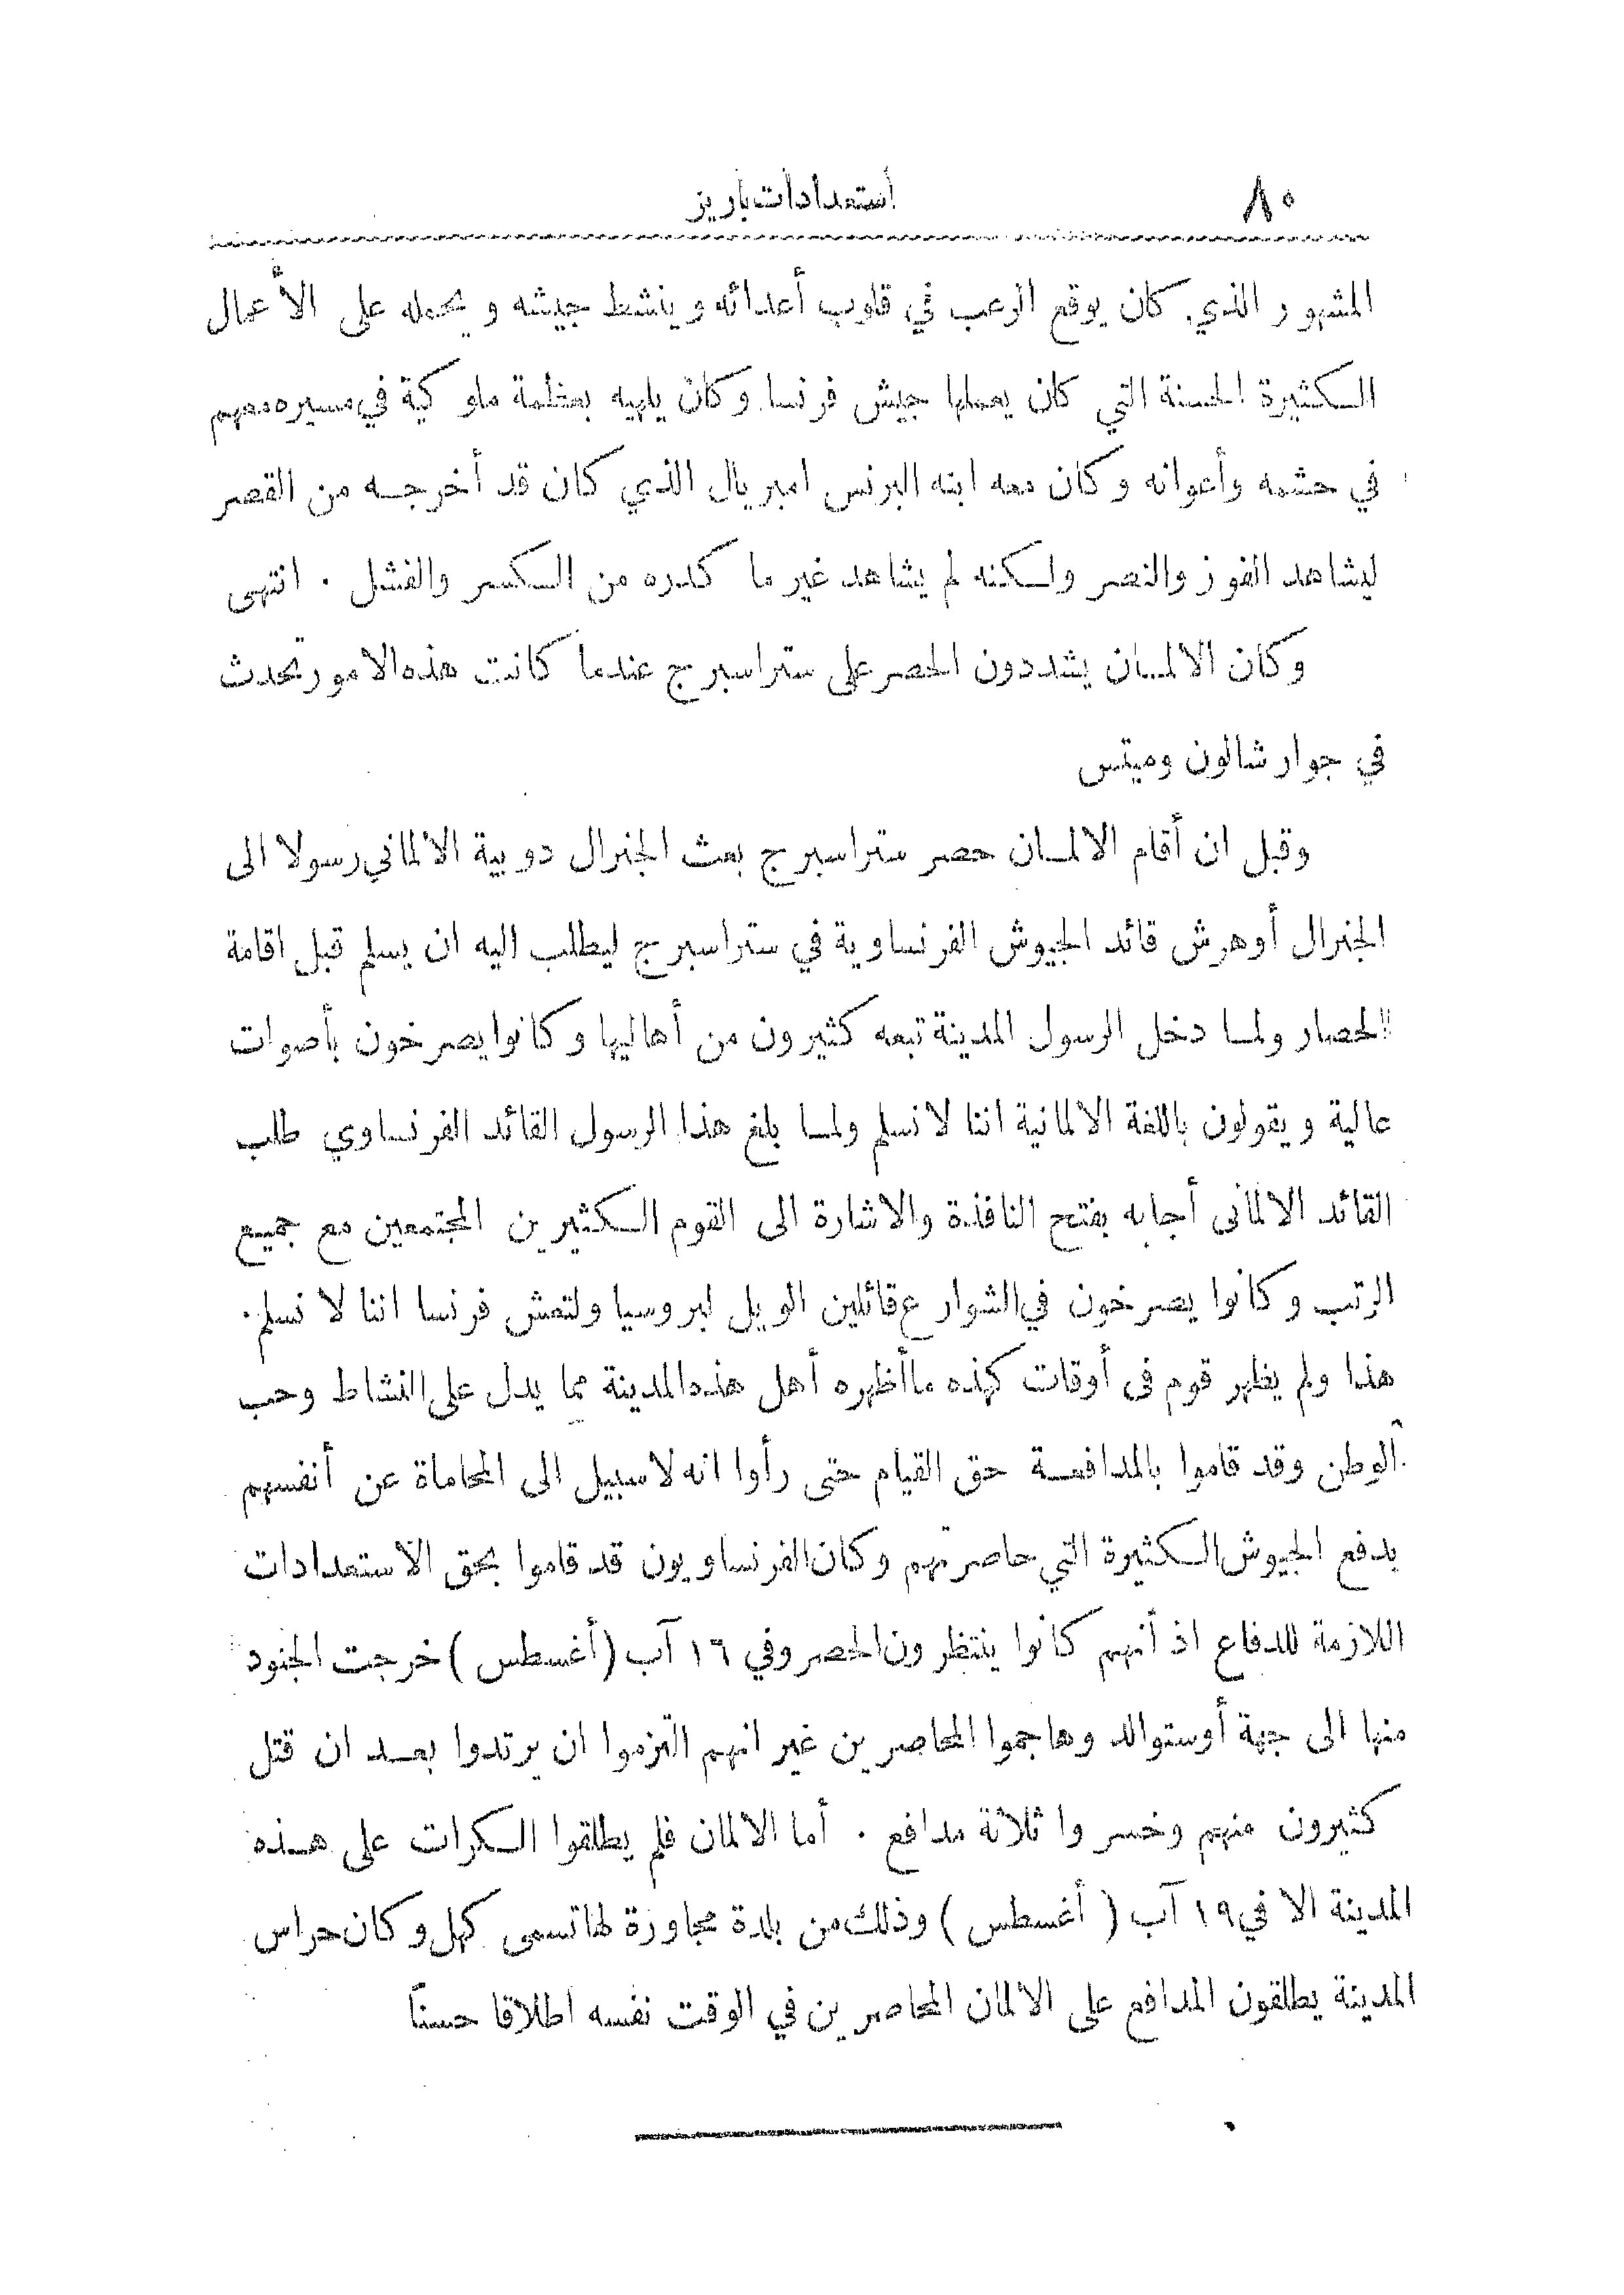 ٨٠
استعدادات باريز
المشهور الذي كان يوقع الرعب في قلوب أعدائه وينشط جيشه ويحمله على الأعمال
الكثيرة الحسنة التي كان يعملها جيش فرنسا وكان يلهيه بعظمة ملوكية في مسيره معهم
في حشمه وأعوانه وكان معه ابنه البرنس امبريال الذي كان قد أخرجه من القصر
ليشاهد الفوز والنصر ولكنه لم يشاهد غير ما كدره من الكسر والفشل . انتهى
وكان الالمان يشددون الحصر على ستراسبرج عندما كانت هذه الامور تحدث
في جوار شالون وميتس
وقبل ان أقام الالمان حصر ستراسبرج بعث الجنرال دوبية الالماني رسولا الى
الجنرال أوهرش قائد الجيوش الفرنساوية في ستراسبرج ليطلب اليه ان يسلم قبل اقامة
الحصار ولما دخل الرسول المدينة تبعه كثيرون من أهاليها وكانوا يصرخون بأصوات
عالية ويقولون باللغة الالمانية اننا لا نسلم ولما بلغ هذا الرسول القائد الفرنساوي طلب
القائد الالمانى أجابه بفتح النافذة والاشارة الى القوم الكثيرين المجتمعين مع جميع
الرتب وكانوا يصرخون في الشوارع قائلين الويل لبروسيا ولتعش فرنسا اننا لا نسلم.
هذا ولم يظهر قوم فى أوقات كهذه ما أظهره أهل هذه المدينة مما يدل على النشاط وحب
الوطن وقد قاموا بالمدافعة حق القيام حتى رأوا انه لا سبيل الى المحاماة عن أنفسهم
بدفع الجيوش الكثيرة التي حاصرتهم وكان الفرنساويون قد قاموا بحق الاستعدادات
اللازمة للدفاع اذ أنهم كانوا ينتظرون الحصر وفي ١٦ آب (أغسطس) خرجت الجنود
منها الى جهة أوستوالد وهاجموا المحاصرين غير انهم التزموا ان يرتدوا بعد ان قتل
كثيرون منهم وخسروا ثلاثة مدافع . أما الالمان فلم يطلقوا الكرات على هذه
المدينة الا في ١٩ آب ( أغسطس ) وذلك من بلدة مجاورة لها تسمى كهل وكان حراس
المدينة يطلقون المدافع على الالمان المحاصرين في الوقت نفسه اطلاقا حسناً